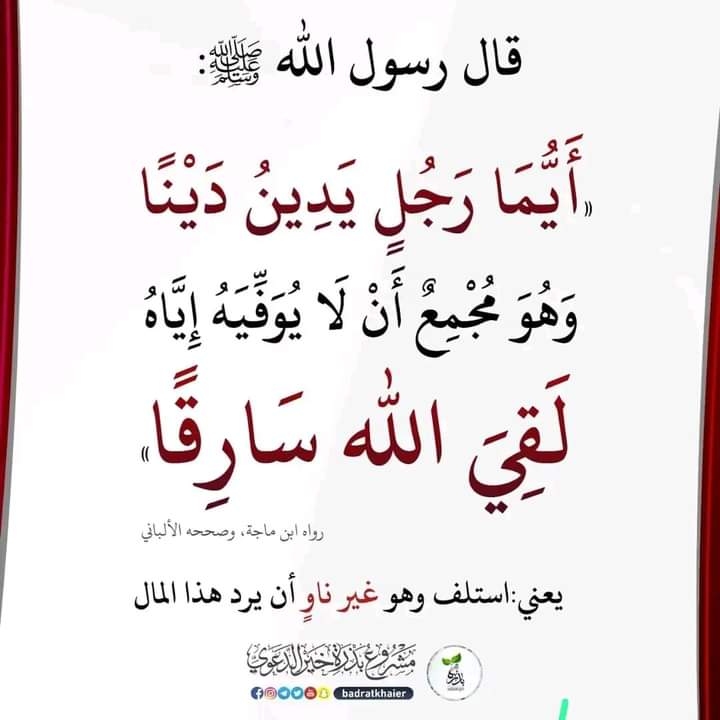 قال رسول الله ﷺ:
«أَيُّمَا رَجُلٍ يَدِينُ دَيْنًا
وَهُوَ مُجْمِعٌ أَنْ لَا يُوَفِّيَهُ إِيَّاهُ
لَقِيَ اللهَ سَارِقًا»
رواه ابن ماجة، وصححه الألباني
يعني:استلف وهو غير ناوٍ أن يرد هذا المال
مشروع بذرة خير الدعوي
badratkhaier